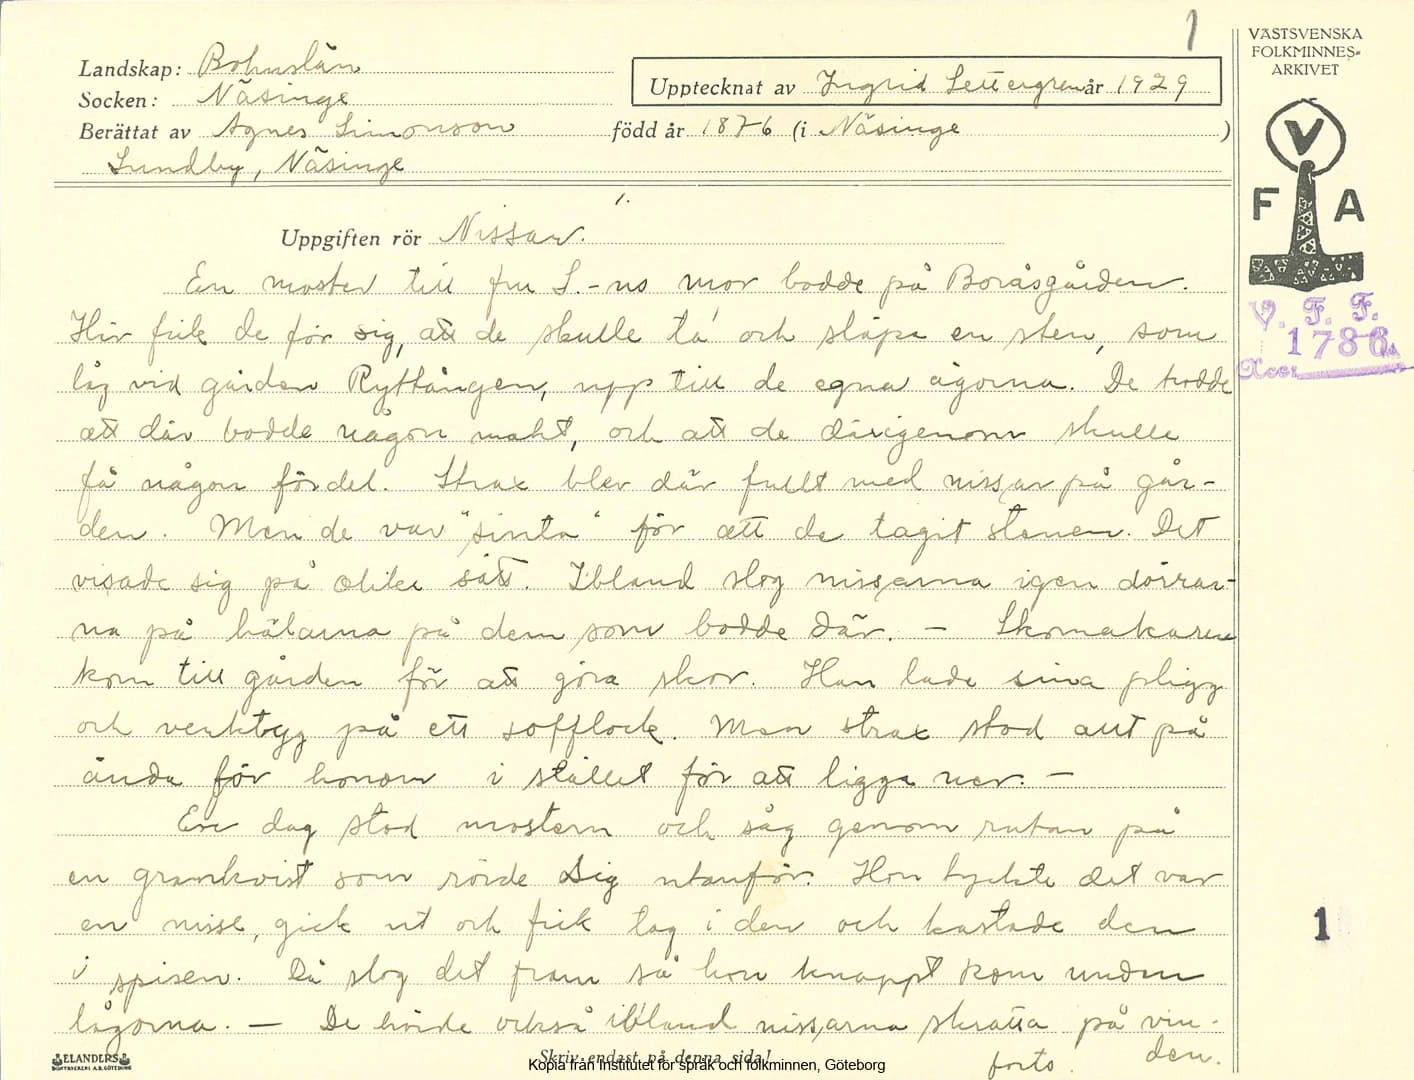 1
Landskap: Bohuslän
Socken: Näsinge
Upptecknat av Ingrid Settergren år 1929
Berättat av Agnes Simonson född år 1876 (i Näsinge )
Lundby, Näsinge
VÄSTSVENSKA
FOLKMINNES-
ARKIVET
V
F A
V. F. F.
1786
Acc:
1.
Uppgiften rör Nissar.
En moster till fru S.-ns mor bodde på Boråsgården.
Här fick de för sig, att de skulle ta' och släpa en sten, som
låg vid gården Ryttängen, upp till de egna ägorna. De trodde
att där bodde någon makt, och att de därigenom skulle
få någon fördel. Strax blev där fullt med nissar på går-
den. Men de var "sinta" för att de tagit stenen. Det
visade sig på olika sätt. Ibland slog nissarna igen dörrar-
na på hälarna på dem som bodde där. – Skomakaren
kom till gården för att göra skor. Han lade sina pligg
och verktyg på ett sofflock. Men strax stod allt på
ända för honom i stället för att ligga ner. –
En dag stod mostern och såg genom rutan på
en grankvist som rörde sig utanför. Hon tyckte det var
en nisse, gick ut och fick tag i den och kastade den
i spisen. Då slog det fram så hon knappt kom undan
lågorna. – De hörde också ibland nissarna skratta på vin-
den.
forts.
ELANDERS
BOKTRYCKERI A.B. GÖTEBORG
Skriv endast på denna sida!
Kopia från Institutet för språk och folkminnen, Göteborg
1